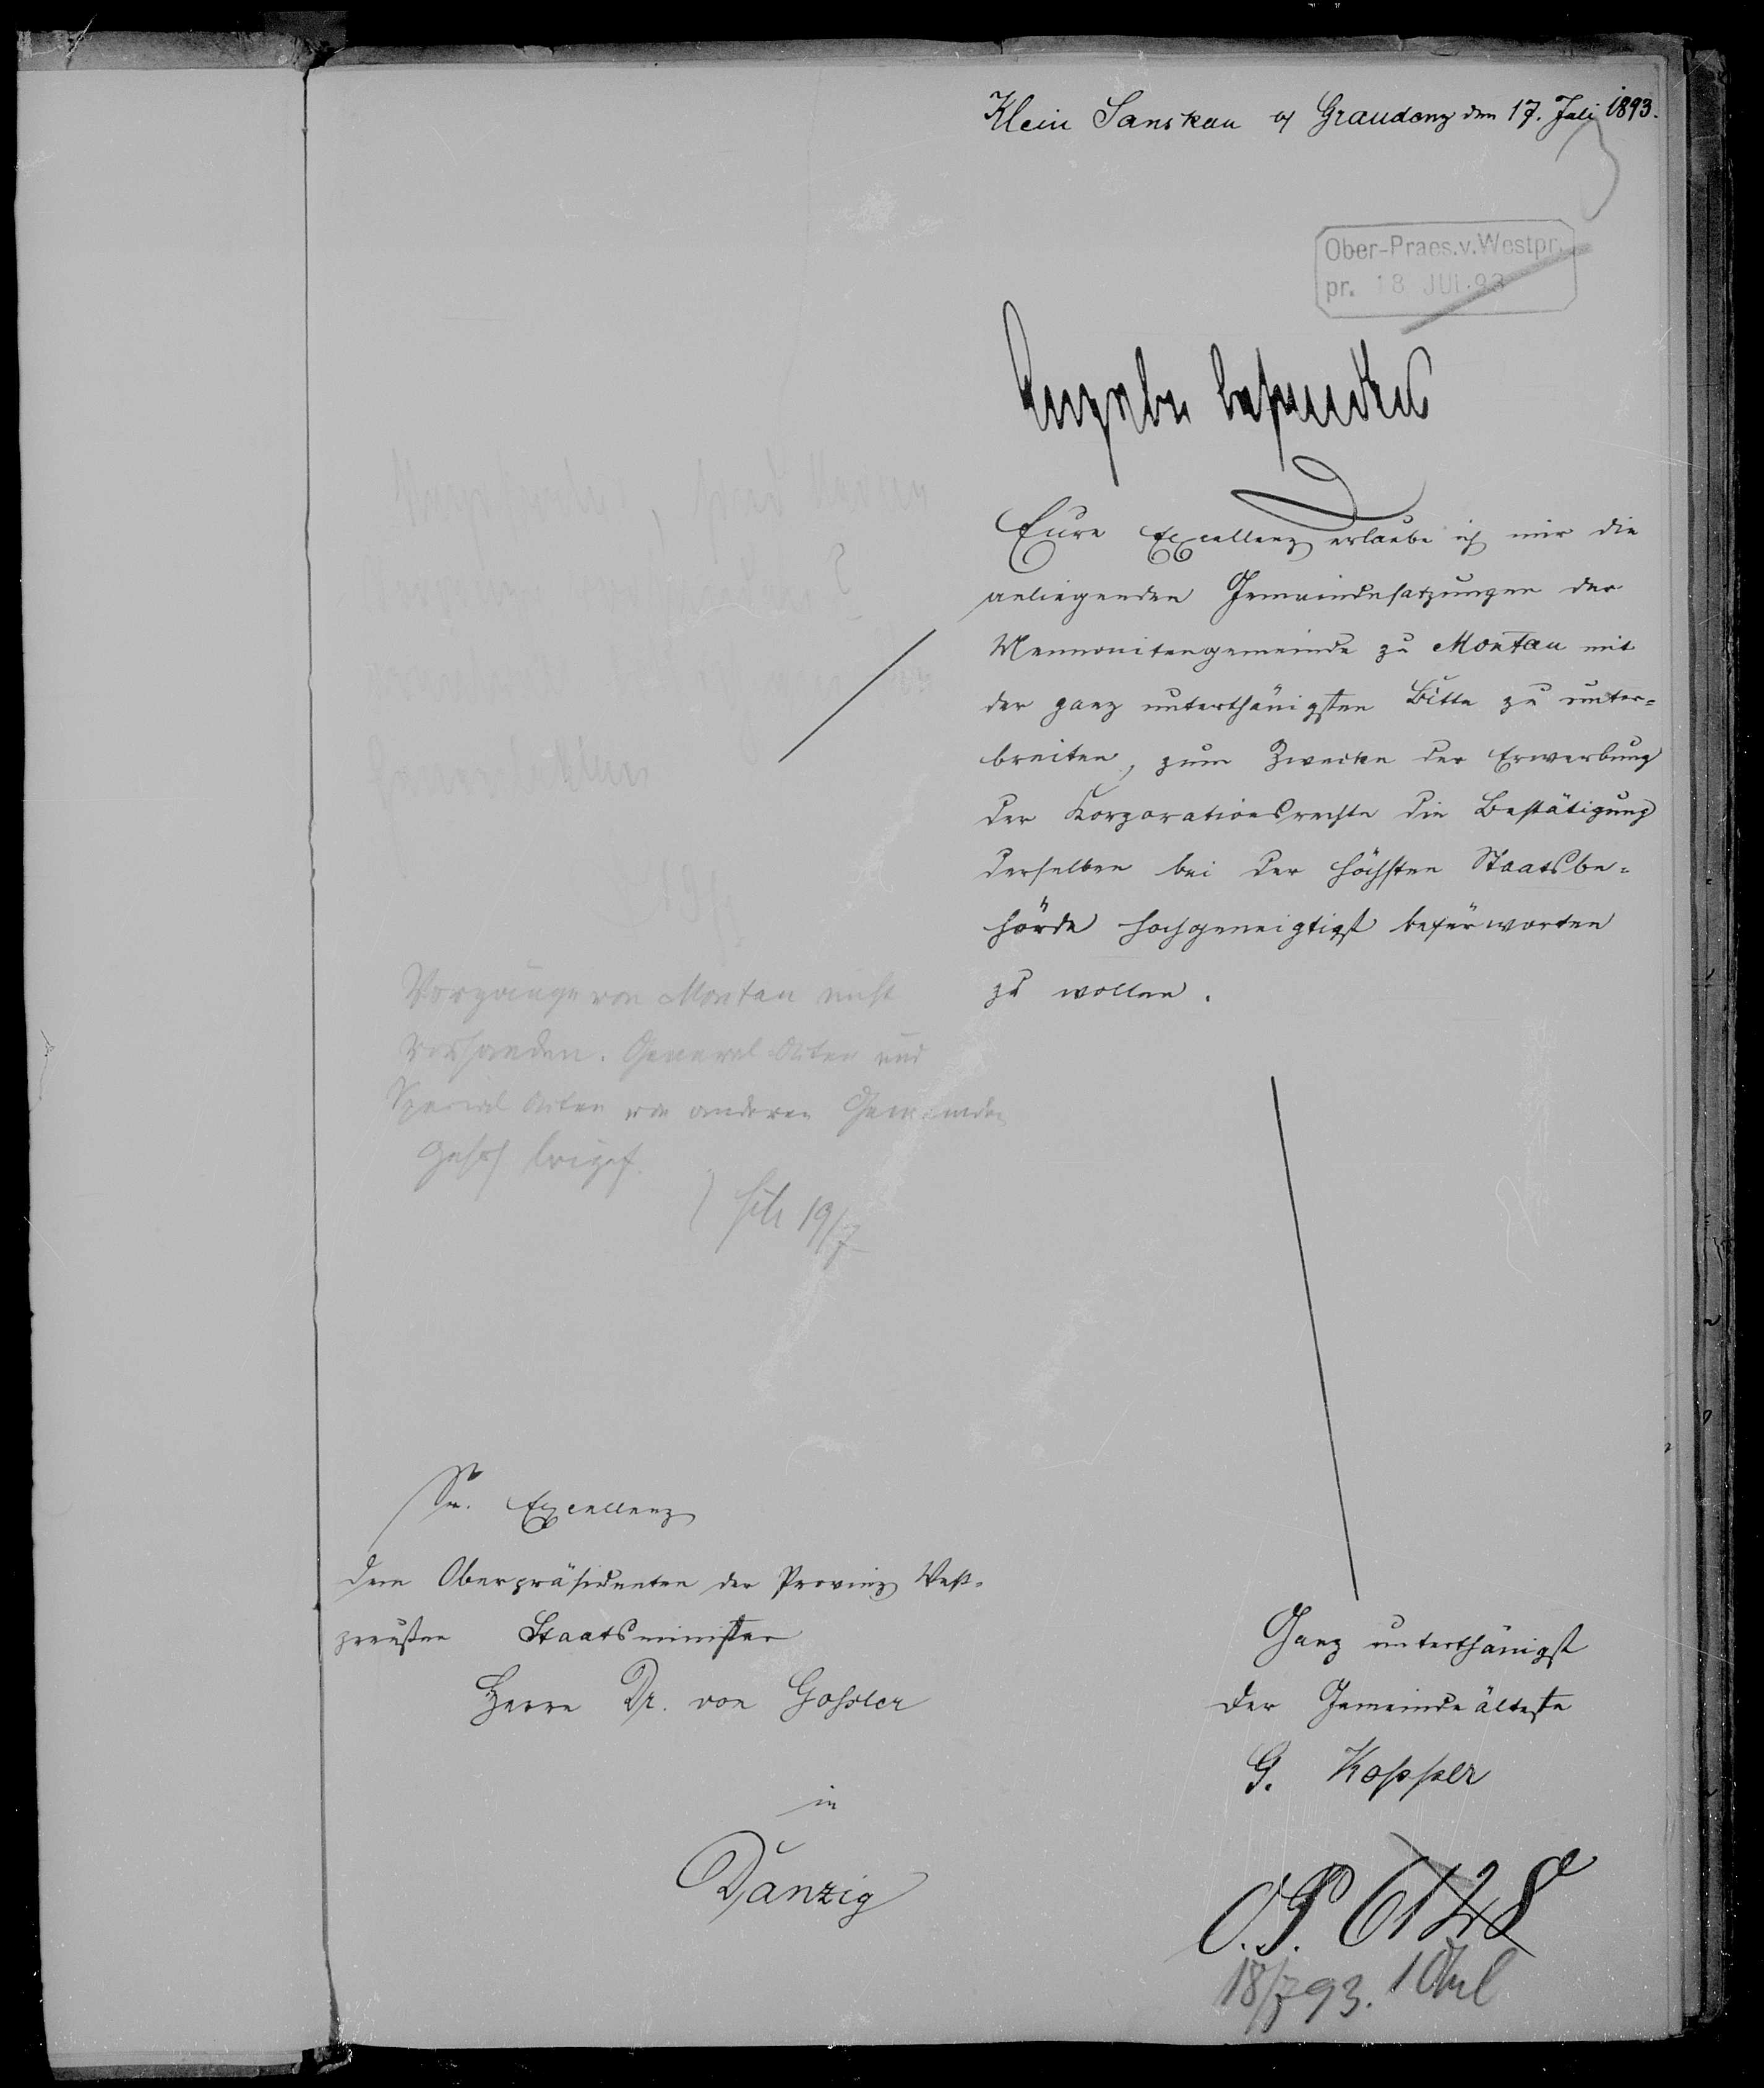 Klein Sanskau b/ Graudenz den 17. Juli 1893.
Ober-Praes.v.Westpr.
pr. 18 JUL.93
Eure Excellenz erlaube ich mir die
anliegenden Gemeindesatzungen der
Mennonitengemeinde zu Montau mit
der ganz unterthänigsten Bitte zu unter=
breiten, zum Zwecke der Erwerbung
der Korporationsrechte die Bestätigung
derselben bei der höchsten Staatsbe=
hörde hochgeneigtigst befürworten
zu wollen.
Vorgänge von Montau nicht
vorhanden. General-Akten und
Special Akten von anderen Gemeinden
gehors. beigef.
19/7
Sr. Excellenz
dem Oberpräsidenten der Provinz West=
preußen Staatsminister
Herrn Dr. von Goßler
in
Danzig
Ganz unterthänigst
der Gemeindeälteste
G. Kopper
O.P. 6128
18/7 93. 1 Anl